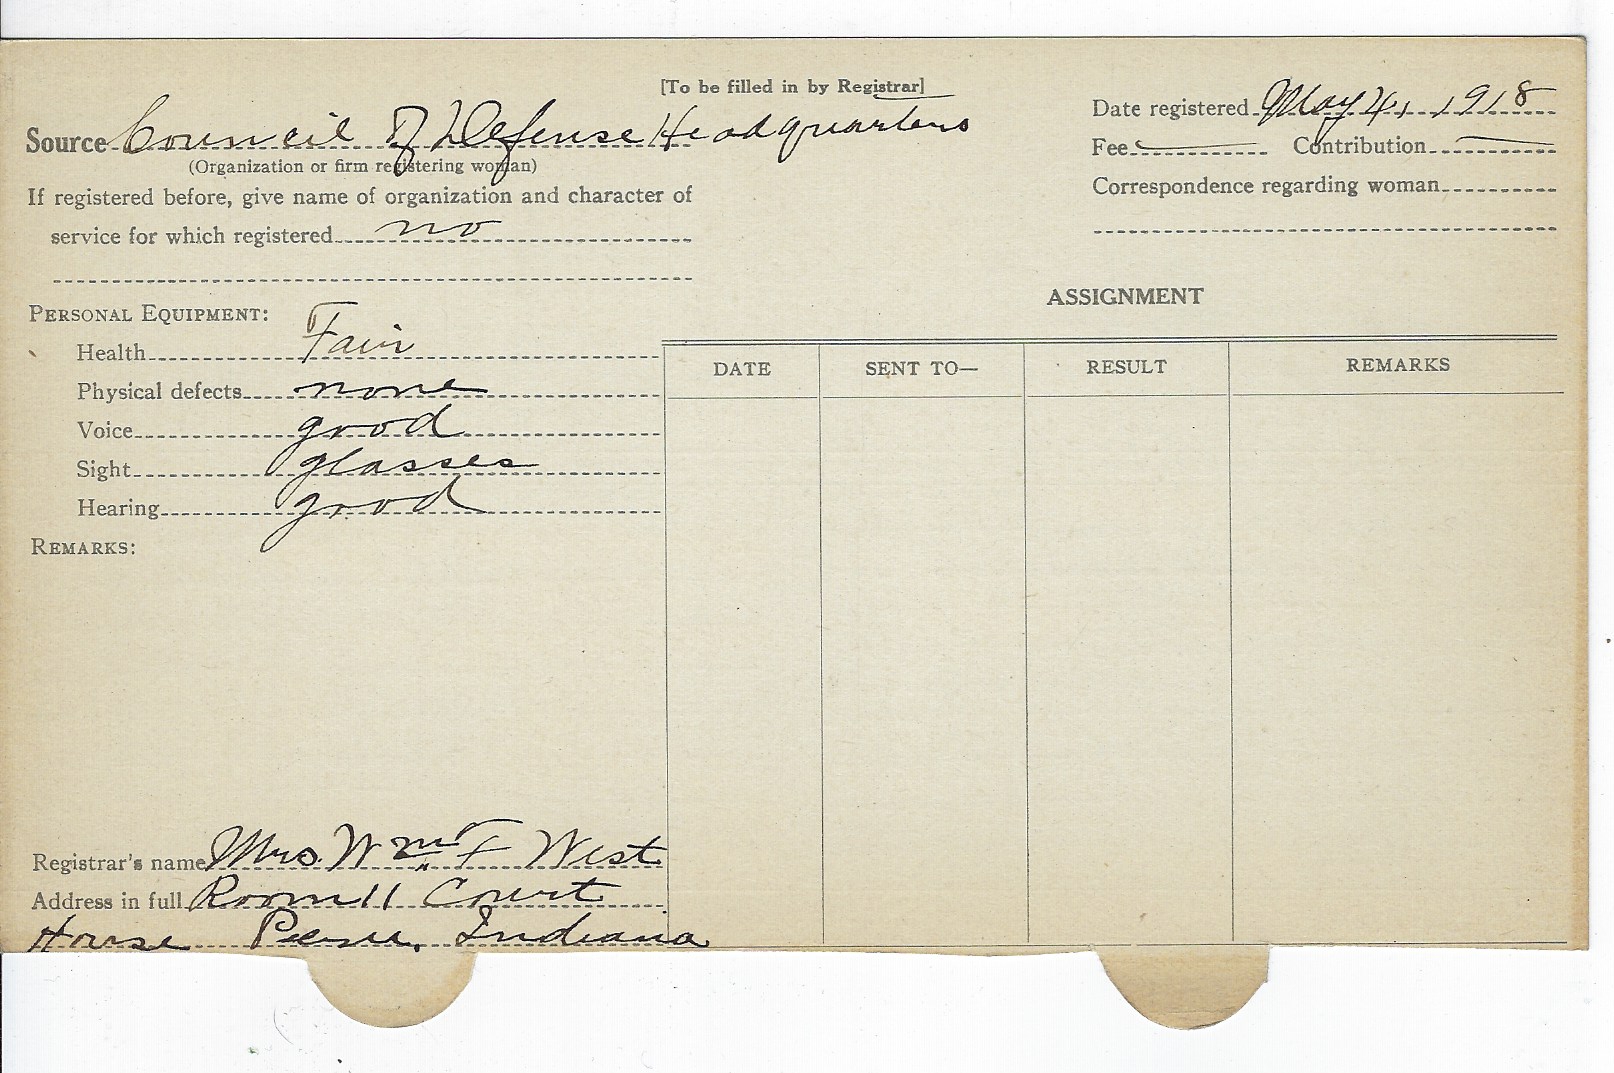 [To be filled in by Registrar]
Source Council of Defense Headquarters
(Organization or firm registering woman)
If registered before, give name of organization and character of
service for which registered no
Date registered May 4, 1918
Fee Contribution
Correspondence regarding woman
PERSONAL EQUIPMENT:
Health Fair
Physical defects none
Voice good
Sight glasses
Hearing good
REMARKS:
ASSIGNMENT
DATE SENT TO— RESULT REMARKS
Registrar's name Mrs. Wm F West
Address in full Room 11 Court
House Peru, Indiana